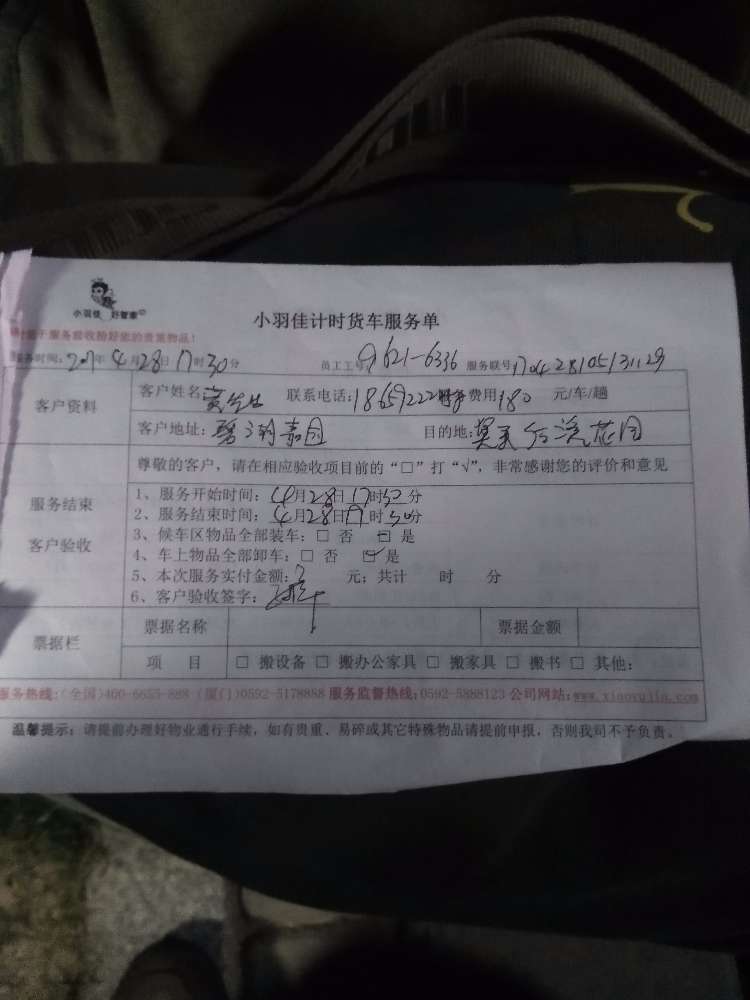 小羽佳 好管家
小羽佳计时货车服务单
服务时间: 2017年4月28日17时30分 员工工号: 621-6336 服务联号: 17042810513129
客户资料
客户姓名: 黄先生 联系电话: 18659222 费用180 元/车/趟
客户地址: 嘉园 目的地: 花园
尊敬的客户,请在相应验收项目前的“□”打“√”,非常感谢您的评价和意见
服务结束
客户验收
1、服务开始时间: 4月28日17时30分
2、服务结束时间: 4月28日 时 分
3、候车区物品全部装车: □ 否 □ 是
4、车上物品全部卸车: □ 否 ☑ 是
5、本次服务实付金额: 元; 共计 时 分
6、客户验收签字:
票据栏
票据名称 票据金额
项 目 □ 搬设备 □ 搬办公家具 □ 搬家具 □ 搬书 □ 其他:
服务热线: (全国)400-6655-888 (厦门)0592-5178858 服务监督热线: 0592-5888123 公司网站: www.xiaoyujia.com
温馨提示: 请提前办理好物业通行手续, 如有贵重、易碎或其它特殊物品请提前申报, 否则我司不予负责。